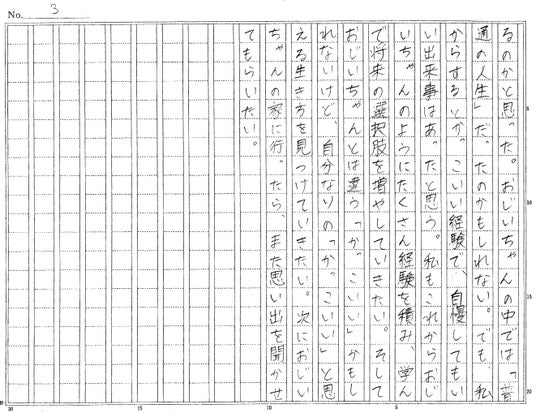 No. 3
るのかと思った。おじいちゃんの中では「普
通の人生」だったのかもしれない。でも、私
からするとかっこいい経験で、自慢してもい
い出来事はあったと思う。私もこれからおじ
いちゃんのようにたくさん経験を積み、学ん
で将来の選択肢を増やしていきたい。そして
おじいちゃんとは違う「かっこいい」かもし
れないけど、自分なりの「かっこいい」と思
える生き方を見つけていきたい。次におじい
ちゃんの家に行ったら、また思い出を聞かせ
てもらいたい。
5
10
15
20
5
10
15
20